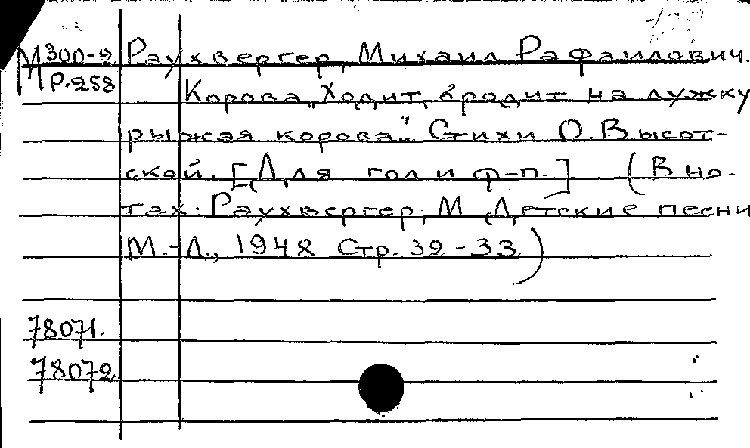 М300-2 Раухвергер, Михаил Рафаилович.
Р-258
Корова „Ходит, бродит на лужку
рыжая корова." Стихи О Высот-
ской. [Для гол и ф-п.] (В но-
тах: Раухвергер, М Детские песни
М.-Л., 1948 Стр. 32-33)
78071.
78072